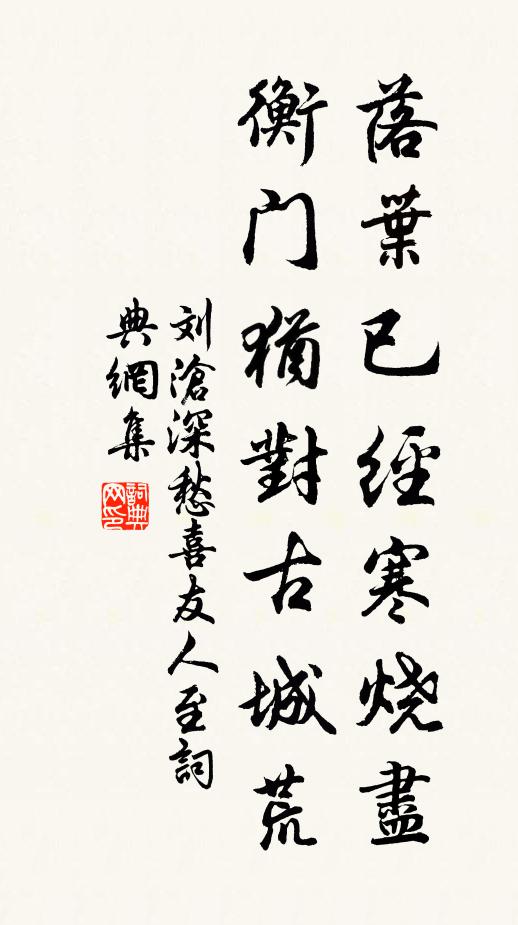 落葉已經寒烧盡
衡門猶對古城荒
刘滄深愁喜友人至詞
典網集
詞典网印